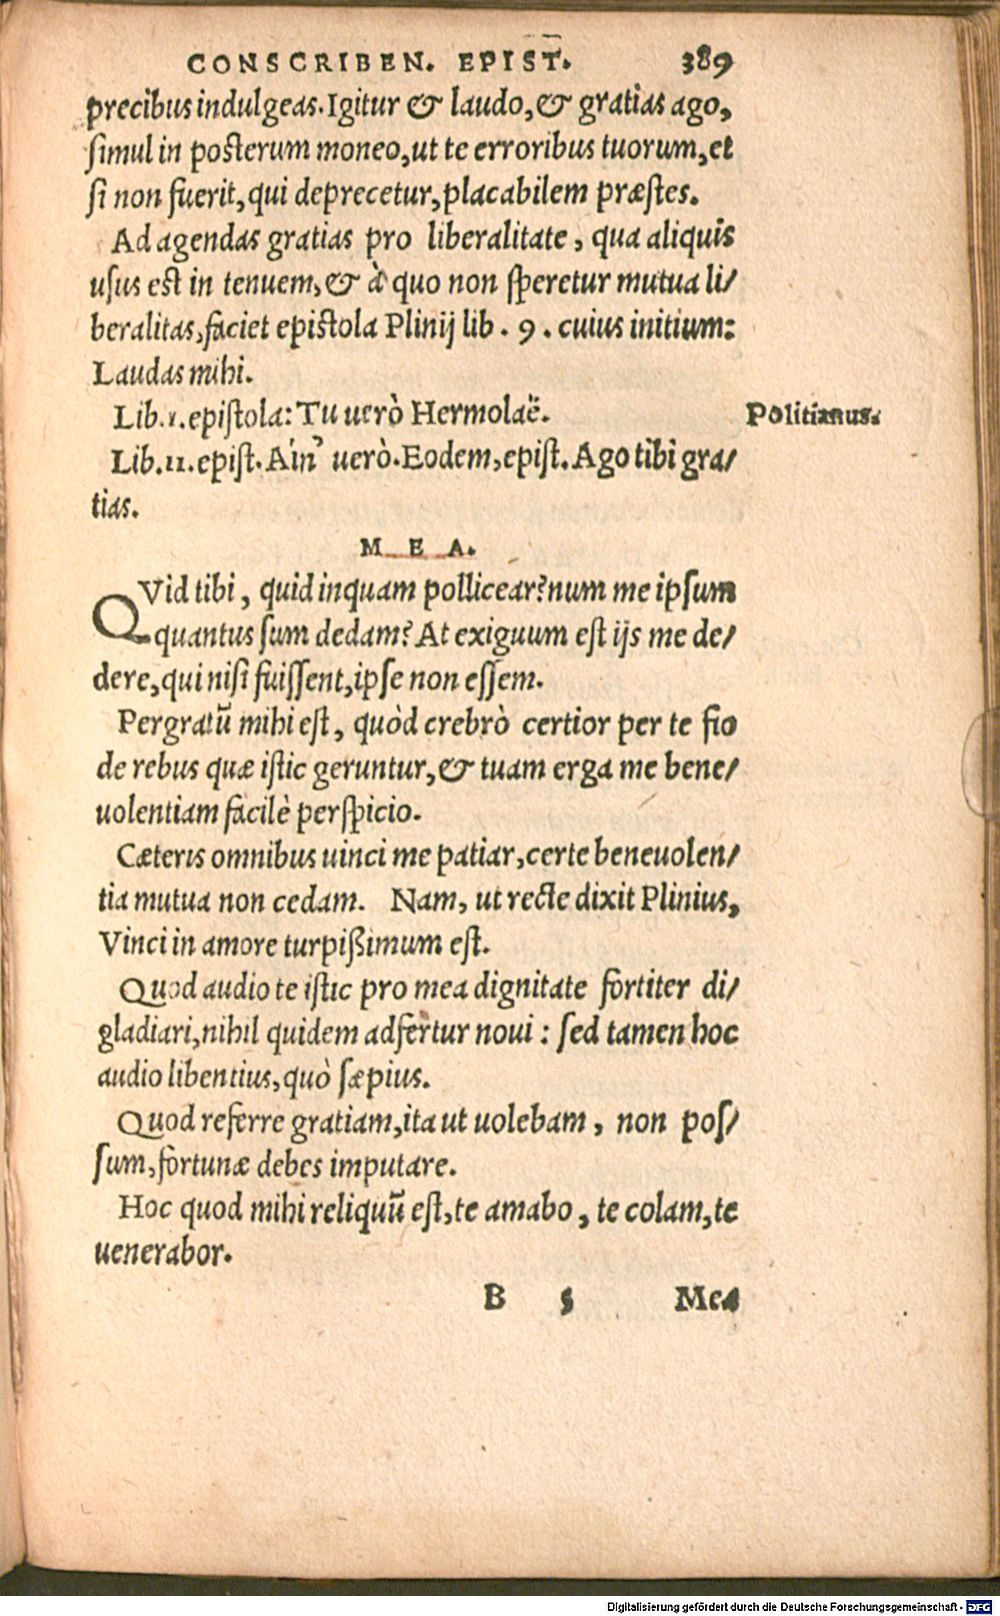 CONSCRIBEN. EPIST. 389
precibus indulgeas. Igitur & laudo, & gratias ago,
simul in posterum moneo, ut te erroribus tuorum, et
si non fuerit, qui deprecetur, placabilem præstes.
Ad agendas gratias pro liberalitate, qua aliquis
usus est in tenuem, & à quo non speretur mutua li/
beralitas, faciet epistola Plinij lib. 9. cuius initium:
Laudas mihi.
Lib. 1. epistola: Tu uerò Hermolaë. Politianus.
Lib. 11. epist. Ain' uerò. Eodem, epist. Ago tibi gra/
tias.
MEA.
QVid tibi, quid inquam pollicear? num me ipsum
quantus sum dedam? At exiguum est ijs me de/
dere, qui nisi fuissent, ipse non essem.
Pergratū mihi est, quòd crebrò certior per te fio
de rebus quæ istic geruntur, & tuam erga me bene/
uolentiam facilè perspicio.
Cæteris omnibus uinci me patiar, certe beneuolen/
tia mutua non cedam. Nam, ut recte dixit Plinius,
Vinci in amore turpißimum est.
Quod audio te istic pro mea dignitate fortiter di/
gladiari, nihil quidem adfertur noui: sed tamen hoc
audio libentius, quò sæpius.
Quod referre gratiam, ita ut uolebam, non pos/
sum, fortunæ debes imputare.
Hoc quod mihi reliquū est, te amabo, te colam, te
uenerabor.
B 5 Mea
Digitalisierung gefördert durch die Deutsche Forschungsgemeinschaft - DFG